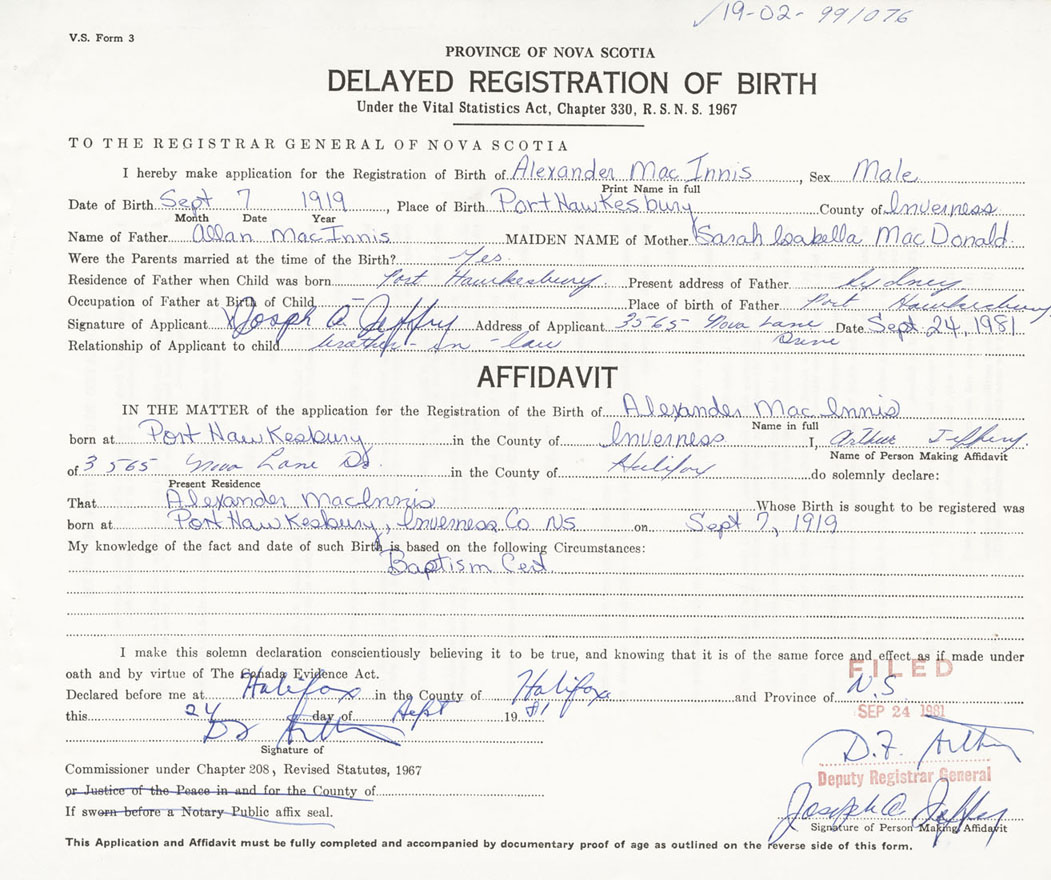 19-02-99/076
V.S. Form 3
PROVINCE OF NOVA SCOTIA
DELAYED REGISTRATION OF BIRTH
Under the Vital Statistics Act, Chapter 330, R.S.N.S. 1967
TO THE REGISTRAR GENERAL OF NOVA SCOTIA
I hereby make application for the Registration of Birth of Alexander Mac Innis, Sex Male
Print Name in full
Date of Birth Sept 7 1919, Place of Birth Port Hawkesbury County of Inverness
Month Date Year
Name of Father Allan MacInnis MAIDEN NAME of Mother Sarah Isabella MacDonald
Were the Parents married at the time of the Birth? Yes
Residence of Father when Child was born Port Hawkesbury Present address of Father Sydney
Occupation of Father at Birth of Child — Place of birth of Father Port Hawkesbury
Signature of Applicant Joseph A. Jeffry Address of Applicant 3565 Nova Lane Date Sept 24, 1981
Relationship of Applicant to child brother-in-law Drive
AFFIDAVIT
IN THE MATTER of the application for the Registration of the Birth of Alexander Mac Innis
Name in full
born at Port Hawkesbury in the County of Inverness I, Arthur Jeffery
Name of Person Making Affidavit
of 3565 Nova Lane Dr. in the County of Halifax do solemnly declare:
Present Residence
That Alexander MacInnis Whose Birth is sought to be registered was
born at Port Hawkesbury, Inverness Co. NS on Sept 7, 1919
My knowledge of the fact and date of such Birth is based on the following Circumstances:
Baptism Cert.
I make this solemn declaration conscientiously believing it to be true, and knowing that it is of the same force and effect as if made under
oath and by virtue of The Canada Evidence Act.
FILED
Declared before me at Halifax in the County of Halifax and Province of N.S
this 24 day of Sept 1981
SEP 24 1981
Signature of
D.F. Arthur
Commissioner under Chapter 208, Revised Statutes, 1967
Deputy Registrar General
or Justice of the Peace in and for the County of
If sworn before a Notary Public affix seal.
Joseph A Jeffry
Signature of Person Making Affidavit
This Application and Affidavit must be fully completed and accompanied by documentary proof of age as outlined on the reverse side of this form.